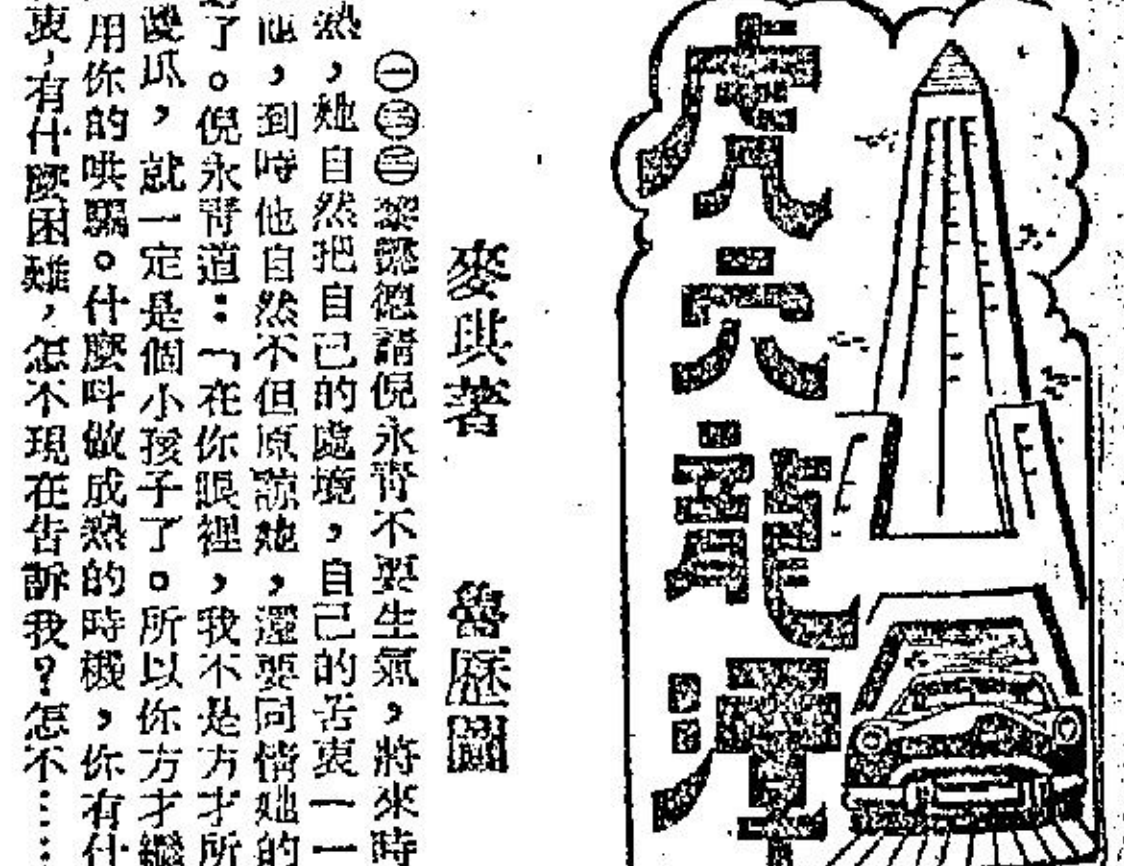 虎穴龍潭
麥珙著　魯歷圖
㊀㊂㊁黎懿德請倪永青不要生氣,將來時
熟,她自然把自己的處境,自己的苦衷一一
他,到時他自然不但原諒她,還要同情她的
了。倪永青道:「在你眼裡,我不是方才所
傻瓜,就一定是個小孩子了。所以你方才繼
用你的哄騙。什麼叫做成熟的時機,你有什
衷,有什麼困難,怎不現在告訴我?怎不……